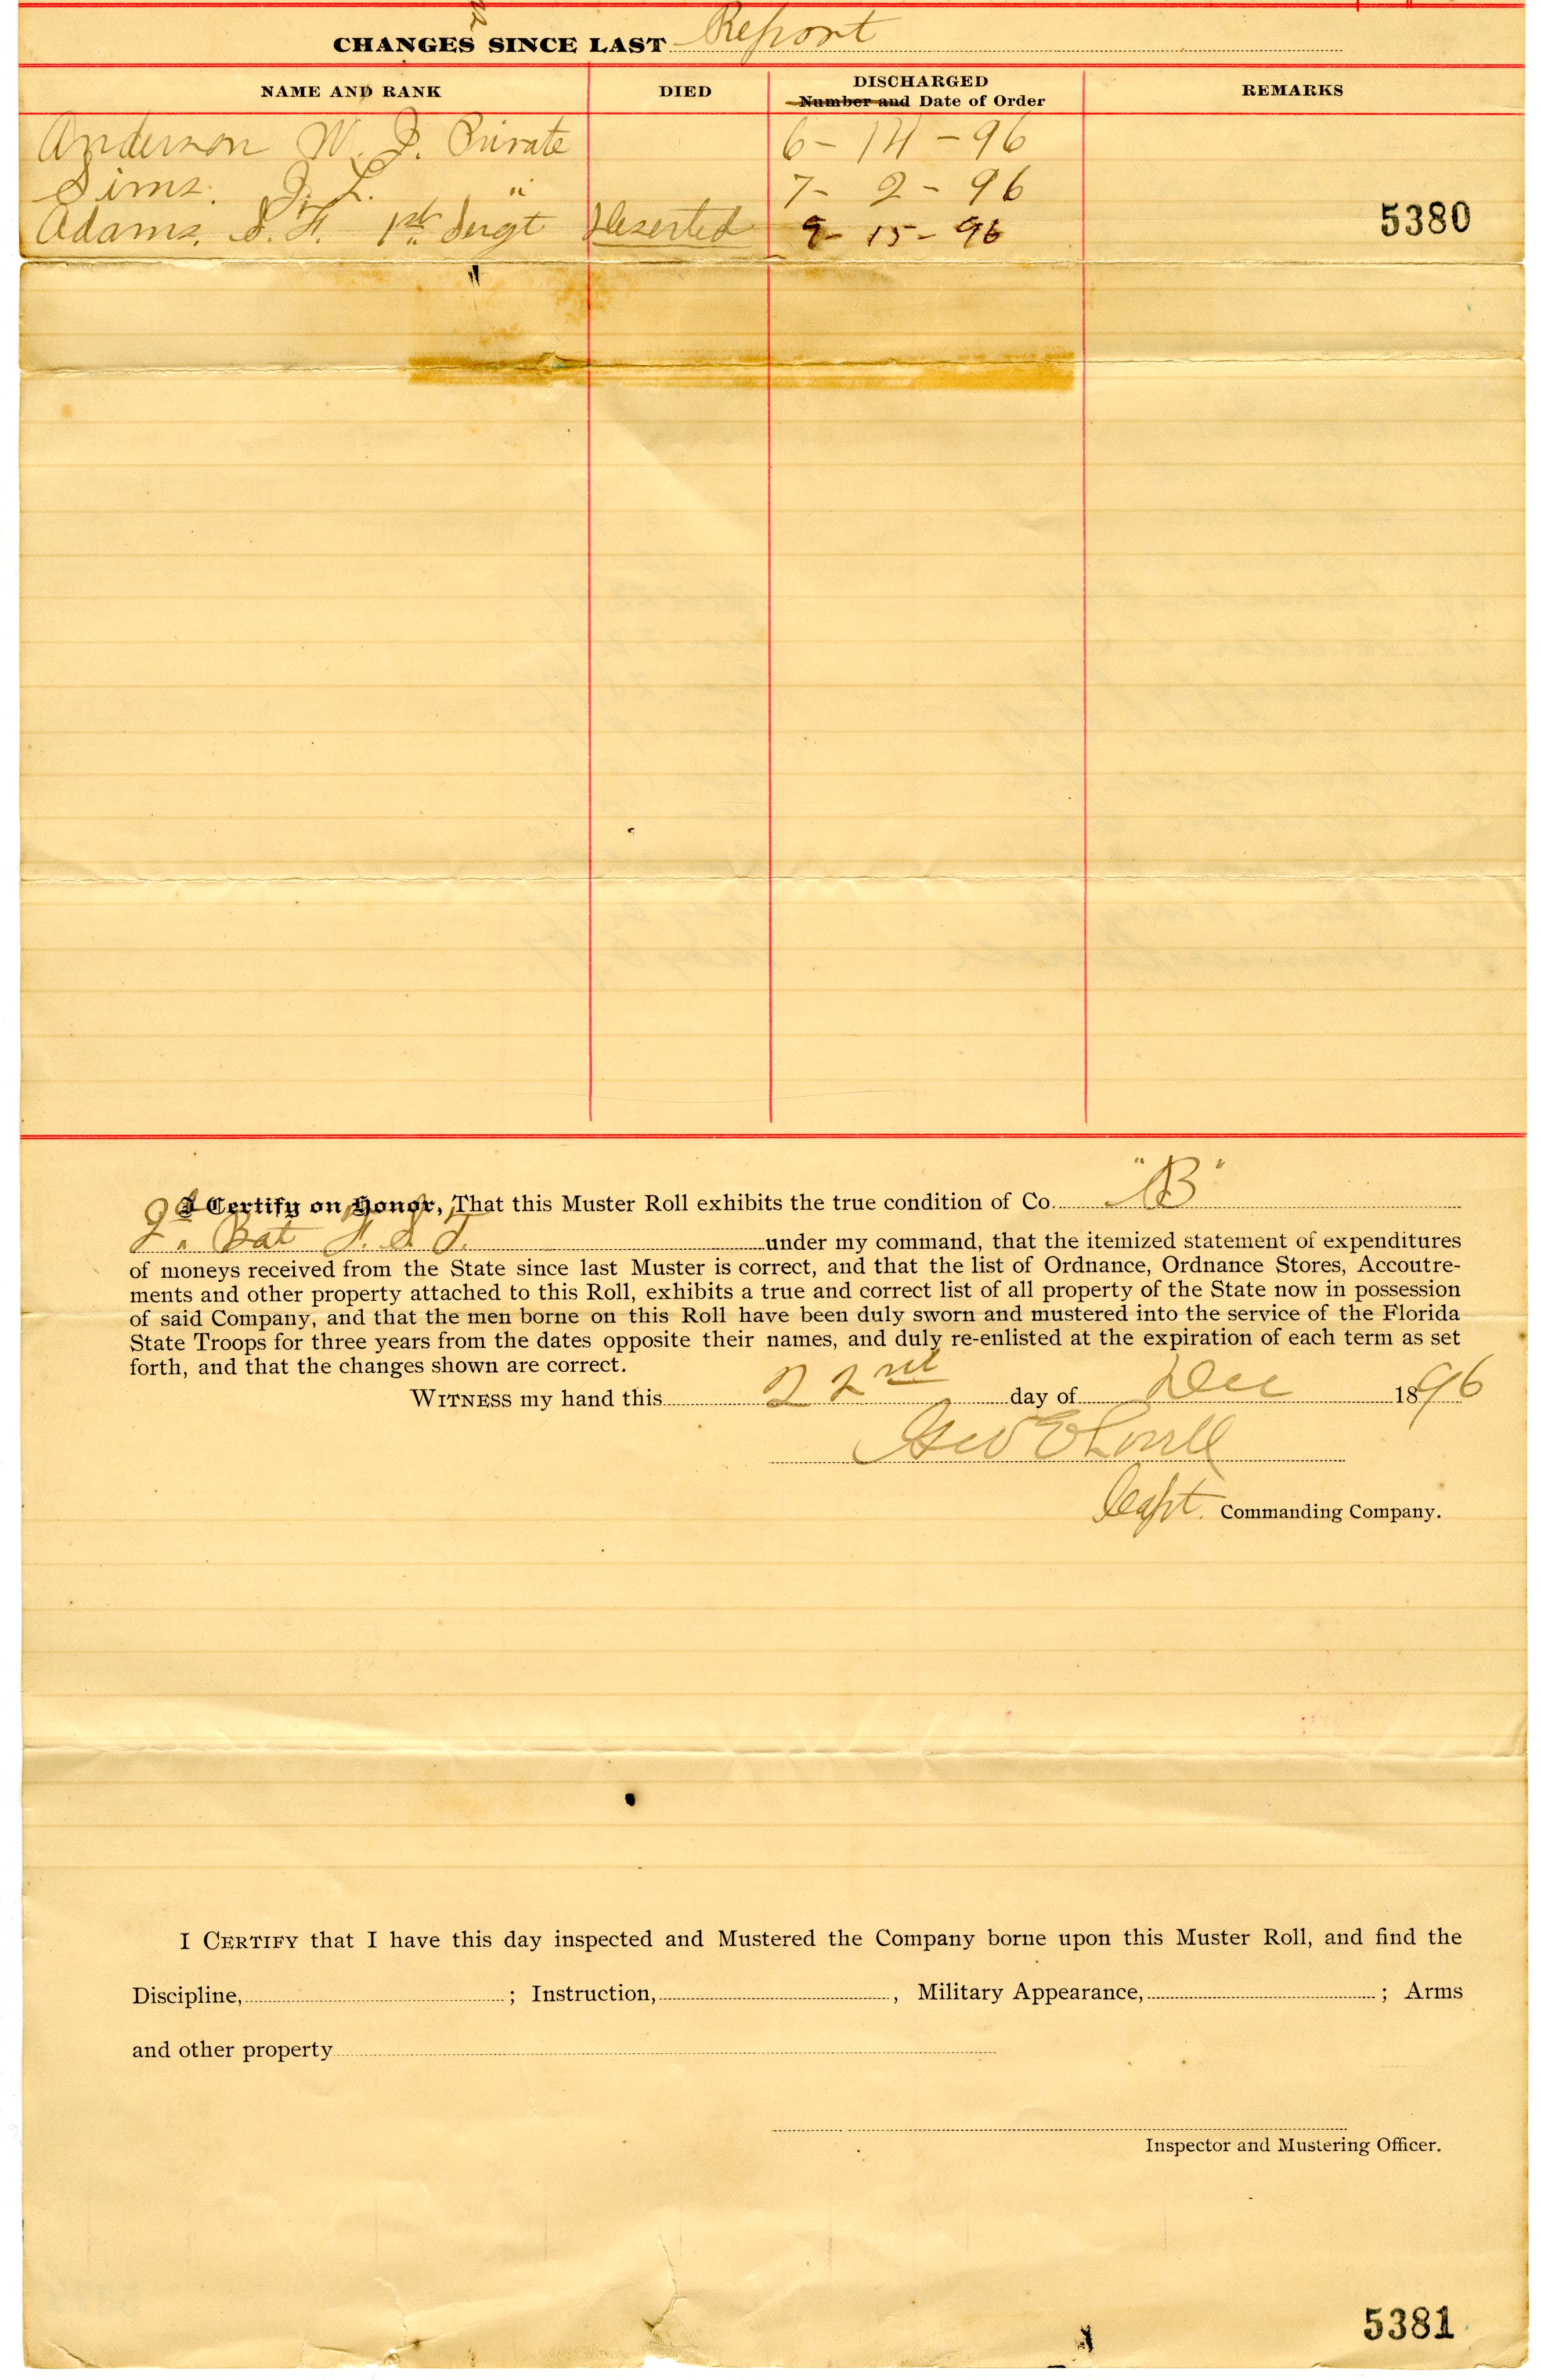 CHANGES SINCE LAST Report
NAME AND RANK DIED DISCHARGED REMARKS
Number and Date of Order
Anderson W. J. Private 6 - 14 - 96
Sims. J. L. " 7 - 2 - 96
Adams. S. F. 1st Sergt Deserted 9 - 15 - 96
5380
I Certify on Honor, That this Muster Roll exhibits the true condition of Co. "B"
2d Bat F. S. T. under my command, that the itemized statement of expenditures
of moneys received from the State since last Muster is correct, and that the list of Ordnance, Ordnance Stores, Accoutre-
ments and other property attached to this Roll, exhibits a true and correct list of all property of the State now in possession
of said Company, and that the men borne on this Roll have been duly sworn and mustered into the service of the Florida
State Troops for three years from the dates opposite their names, and duly re-enlisted at the expiration of each term as set
forth, and that the changes shown are correct.
WITNESS my hand this 22nd day of Dec 1896
Geo E Lovell
Capt. Commanding Company.
I CERTIFY that I have this day inspected and Mustered the Company borne upon this Muster Roll, and find the
Discipline, ; Instruction, , Military Appearance, ; Arms
and other property
Inspector and Mustering Officer.
5381